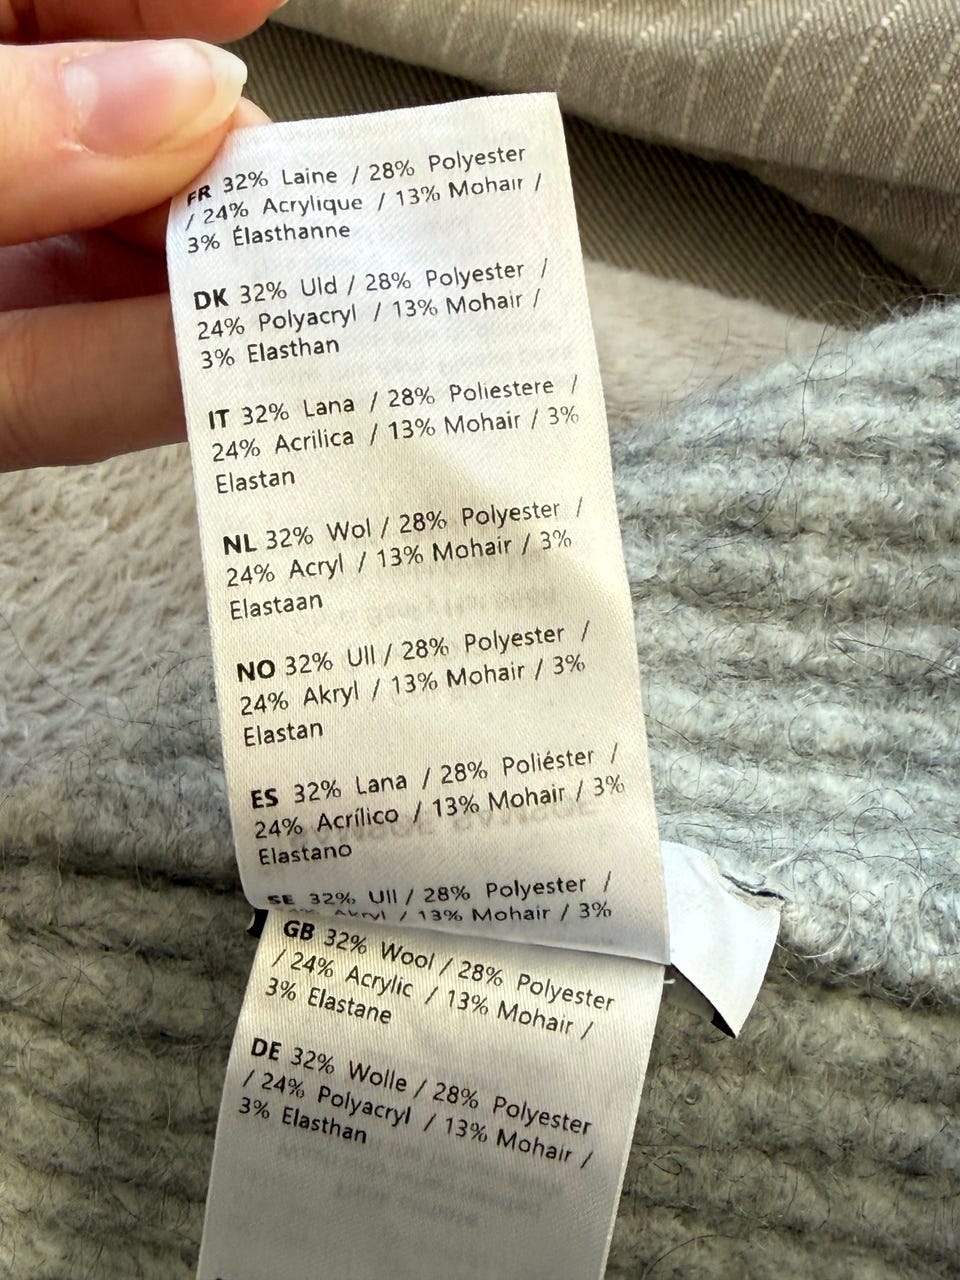 FR 32% Laine / 28% Polyester
/ 24% Acrylique / 13% Mohair /
3% Élasthanne
DK 32% Uld / 28% Polyester /
24% Polyacryl / 13% Mohair /
3% Elasthan
IT 32% Lana / 28% Poliestere /
24% Acrilica / 13% Mohair / 3%
Elastan
NL 32% Wol / 28% Polyester /
24% Acryl / 13% Mohair / 3%
Elastaan
NO 32% Ull / 28% Polyester /
24% Akryl / 13% Mohair / 3%
Elastan
ES 32% Lana / 28% Poliéster /
24% Acrílico / 13% Mohair / 3%
Elastano
SE 32% Ull / 28% Polyester /
Akryl / 13% Mohair / 3%
GB 32% Wool / 28% Polyester
/ 24% Acrylic / 13% Mohair /
3% Elastane
DE 32% Wolle / 28% Polyester
/ 24% Polyacryl / 13% Mohair /
3% Elasthan